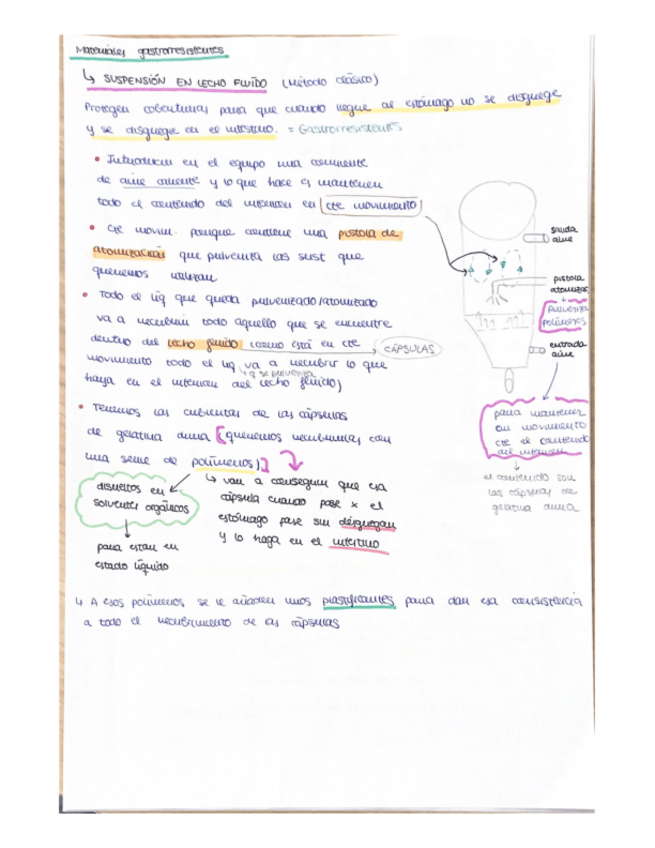 Materiales gastrorresistentes
↳ SUSPENSIÓN EN LECHO FLUIDO (Método clásico)
Protegen coberturas para que cuando llegue al estómago no se disgrege
y se disgrege en el intestino. = Gastrorresistentes
• Introducen en el equipo una corriente
de aire caliente y lo que hace es mantener
todo el contenido del interior en cte movimiento
• Cte movim. porque contiene una pistola de
atomización que pulveriza las sust que
queremos utilizar
• Todo el líq que queda pulverizado/atomizado
va a recubrir todo aquello que se encuentre
dentro del lecho fluido (como está en cte → CÁPSULAS
movimiento todo el líq va a recubrir lo que
q se pulveriza
haya en el interior del lecho fluido)
• Tenemos las cubiertas de las cápsulas
de gelatina dura [queremos recubrirlas con
una serie de polímeros)]
disueltos en
solventes orgánicos
para estar en
estado líquido
↳ van a conseguir que esa
cápsula cuando pase x el
estómago pase sin disgregar
y lo haga en el intestino
salida
aire
pistola
atomizac
+
pulveriza
polímeros
entrada
aire
para mantener
en movimiento
cte el contenido
del interior
el contenido son
las cápsulas de
gelatina dura
↳ A esos polímeros se le añaden unos plastificantes para dar esa consistencia
a todo el recubrimiento de las cápsulas